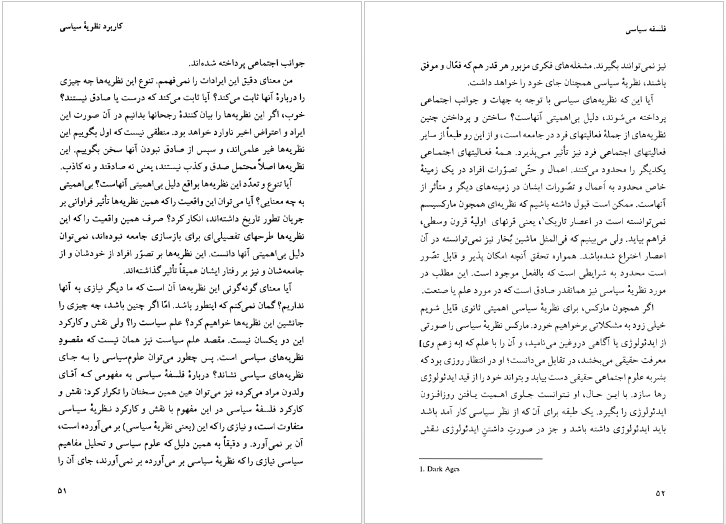 کاربرد نظریهٔ سیاسی
جوانب اجتماعی پرداخته شده‌اند.
من معنای دقیق این ایرادات را نمی‌فهمم. تنوع این نظریه‌ها چه چیزی
را دربارهٔ آنها ثابت می‌کند؟ آیا ثابت می‌کند که درست یا صادق نیستند؟
خوب، اگر این نظریه‌ها را بیان کنندهٔ رجحانها بدانیم در آن صورت این
ایراد و اعتراض اخیر ناوارد خواهد بود. منطقی نیست که اول بگوییم این
نظریه‌ها غیر علمی‌اند، و سپس از صادق نبودن آنها سخن بگوییم. این
نظریه‌ها اصلاً محتمل صدق و کذب نیستند، یعنی نه صادقند و نه کاذب.
آیا تنوع و تعدّد این نظریه‌ها بواقع دلیل بی‌اهمیتی آنهاست؟ بی‌اهمیتی
به چه معنایی؟ آیا می‌توان این واقعیت را که همین نظریه‌ها تأثیر فراوانی بر
جریان تطور تاریخ داشته‌اند، انکار کرد؟ صرف همین واقعیت را که این
نظریه‌ها طرحهای تفصیلی‌ای برای بازسازی جامعه نبوده‌اند، نمی‌توان
دلیل بی‌اهمیتی آنها دانست. این نظریه‌ها بر تصوّر افراد از خودشان و از
جامعه‌شان و نیز بر رفتار ایشان عمیقاً تأثیر گذاشته‌اند.
آیا معنای گونه‌گونی این نظریه‌ها آن است که ما دیگر نیازی به آنها
نداریم؟ گمان نمی‌کنم که اینطور باشد. امّا اگر چنین باشد، چه چیزی را
جانشین این نظریه‌ها خواهیم کرد؟ علم سیاست را؟ ولی نقش و کارکرد
این دو یکسان نیست. مقصد علم سیاست نیز همان نیست که مقصودِ
نظریه‌های سیاسی است. پس چطور می‌توان علوم‌سیاسی را به جای
نظریه‌های سیاسی نشاند؟ دربارهٔ فلسفهٔ سیاسی به مفهومی که آقای
ولدون مراد می‌کرده نیز می‌توان هین همین سخنان را تکرار کرد: نقش و
کارکرد فلسفهٔ سیاسی در این مفهوم با نقش و کارکرد نظریهٔ سیاسی
متفاوت است، و نیازی را که این (یعنی نظریهٔ سیاسی) بر می‌آورده است،
آن بر نمی‌آورد. و دقیقاً به همین دلیل که علوم سیاسی و تحلیل مفاهیم
سیاسی نیازی را که نظریهٔ سیاسی بر می‌آورده بر نمی‌آورند، جای آن را
۵۱
فلسفه سیاسی
نیز نمی‌توانند بگیرند. مشغله‌های فکری مزبور هر قدر هم که فعّال و موفق
باشند، نظریهٔ سیاسی همچنان جای خود را خواهد داشت.
آیا این که نظریه‌های سیاسی با توجه به جهات و جوانب اجتماعی
پرداخته می‌شوند، دلیل بی‌اهمیتی آنهاست؟ ساختن و پرداختن چنین
نظریه‌های از جملهٔ فعالیتهای فرد در جامعه است، و از این رو طبعاً از سایر
فعالیتهای اجتماعی فرد نیز تأثیر می‌پذیرد. همهٔ فعالیتهای اجتماعی
یکدیگر را محدود می‌کنند. اعمال و حتّی تصوّرات افراد در یک زمینهٔ
خاص محدود به اَعمال و تصّورات ایشان در زمینه‌های دیگر و متأثر از
آنهاست. ممکن است قبول داشته باشیم که نظریه‌ای همچون مارکسیسم
نمی‌توانسته است در اعصار تاریک۱، یعنی قرنهای اولیهٔ قرون وسطی،
فراهم بیاید. ولی می‌بینیم که فی‌المثل ماشین بُخار نیز نمی‌توانسته در آن
اعصار اختراع شده‌باشد. همواره تحقق آنچه امکان پذیر و قابل تصّور
است محدود به شرایطی است که بالفعل موجود است. این مطلب در
مورد نظریهٔ سیاسی نیز همانقدر صادق است که در مورد علم یا صنعت.
اگر همچون مارکس، برای نظریهٔ سیاسی اهمیتی ثانوی قایل شویم
خیلی زود به مشکلاتی برخواهیم خورد. مارکس نظریهٔ سیاسی را صورتی
از ایدئولوژی یا آگاهی دروغین می‌نامید، و آن را با علم که [به زعم وی]
معرفت حقیقی می‌بخشد، در تقابل می‌دانست؛ او در انتظار روزی بود که
بشر به علوم اجتماعی حقیقی دست بیابد و بتواند خود را از قید ایدئولوژی
رها سازد. با این حال، او نتوانست جلوی اهمیت یافتن روزافزون
ایدئولوژی را بگیرد. یک طبقه برای آن که از نظر سیاسی کار آمد باشد
باید ایدئولوژی داشته باشد و جز در صورتِ داشتنِ ایدئولوژی نقش
1. Dark Ages
۵۲